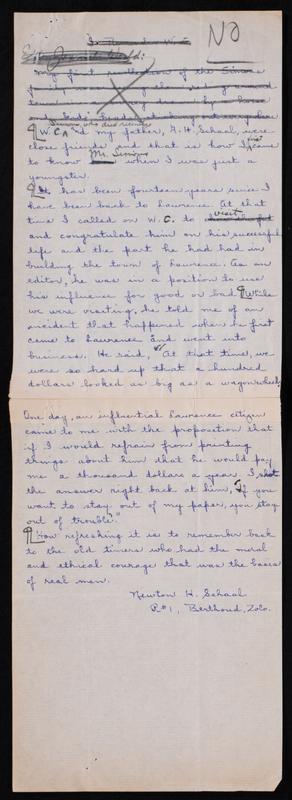 NO
Editor Journal-World:
My first recollection of the Simons
Simons who died recently
W.C. and my father, G.H. Schaal, were
close friends and that is how I came
first
to know Mr. Simons when I was just a
youngster.
It has been fourteen years since I
have been back to Lawrence. At that
time I called on W.C. to visit
and congratulate him on his successful
life and the part he had had in
building the town of Lawrence. As an
editor, he was in a position to use
his influence for good or bad. While
we were visiting, he told me of an
incident that happened when he first
came to Lawrence and went into
business. He said, "At that time, we
were so hard up that a hundred
dollars looked as big as a wagonwheel.
One day, an influential Lawrence citizen
came to me with the proposition that
if I would refrain from printing
things about him that he would pay
me a thousand dollars a year. I shot
the answer right back at him, 'If you
want to stay out of my paper, you stay
out of trouble'."
How refreshing it is to remember back
to the old timers who had the moral
and ethical courage that was the basis
of real men.
Newton H. Schaal
R#1, Berthoud, Colo.